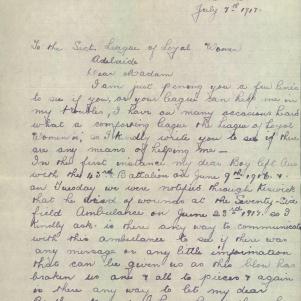 July 7th 1917.
To the Sect. League of Loyal Women
Adelaide
Dear Madam
I am just penning you a few lines
to see if you, or your league can help me in
my troubles, I have on many occasions heard
what a comforting league the League of Loyal
Women is, so I kindly write you to see if there
are any means of helping me —
In the first instance my dear Boy left Aus
with the 43rd Battalion on June 9th 1916. &
on Tuesday we were notified through Keswick
that he died of wounds at the Seventy-Six
field Ambulance on June 23rd 1917. so I
kindly ask is there any way to communicate
with this ambulance to see if there was
any message or any little information
that can be given us as this blow has
broken us one & all to pieces & again
is there any way to let my dear